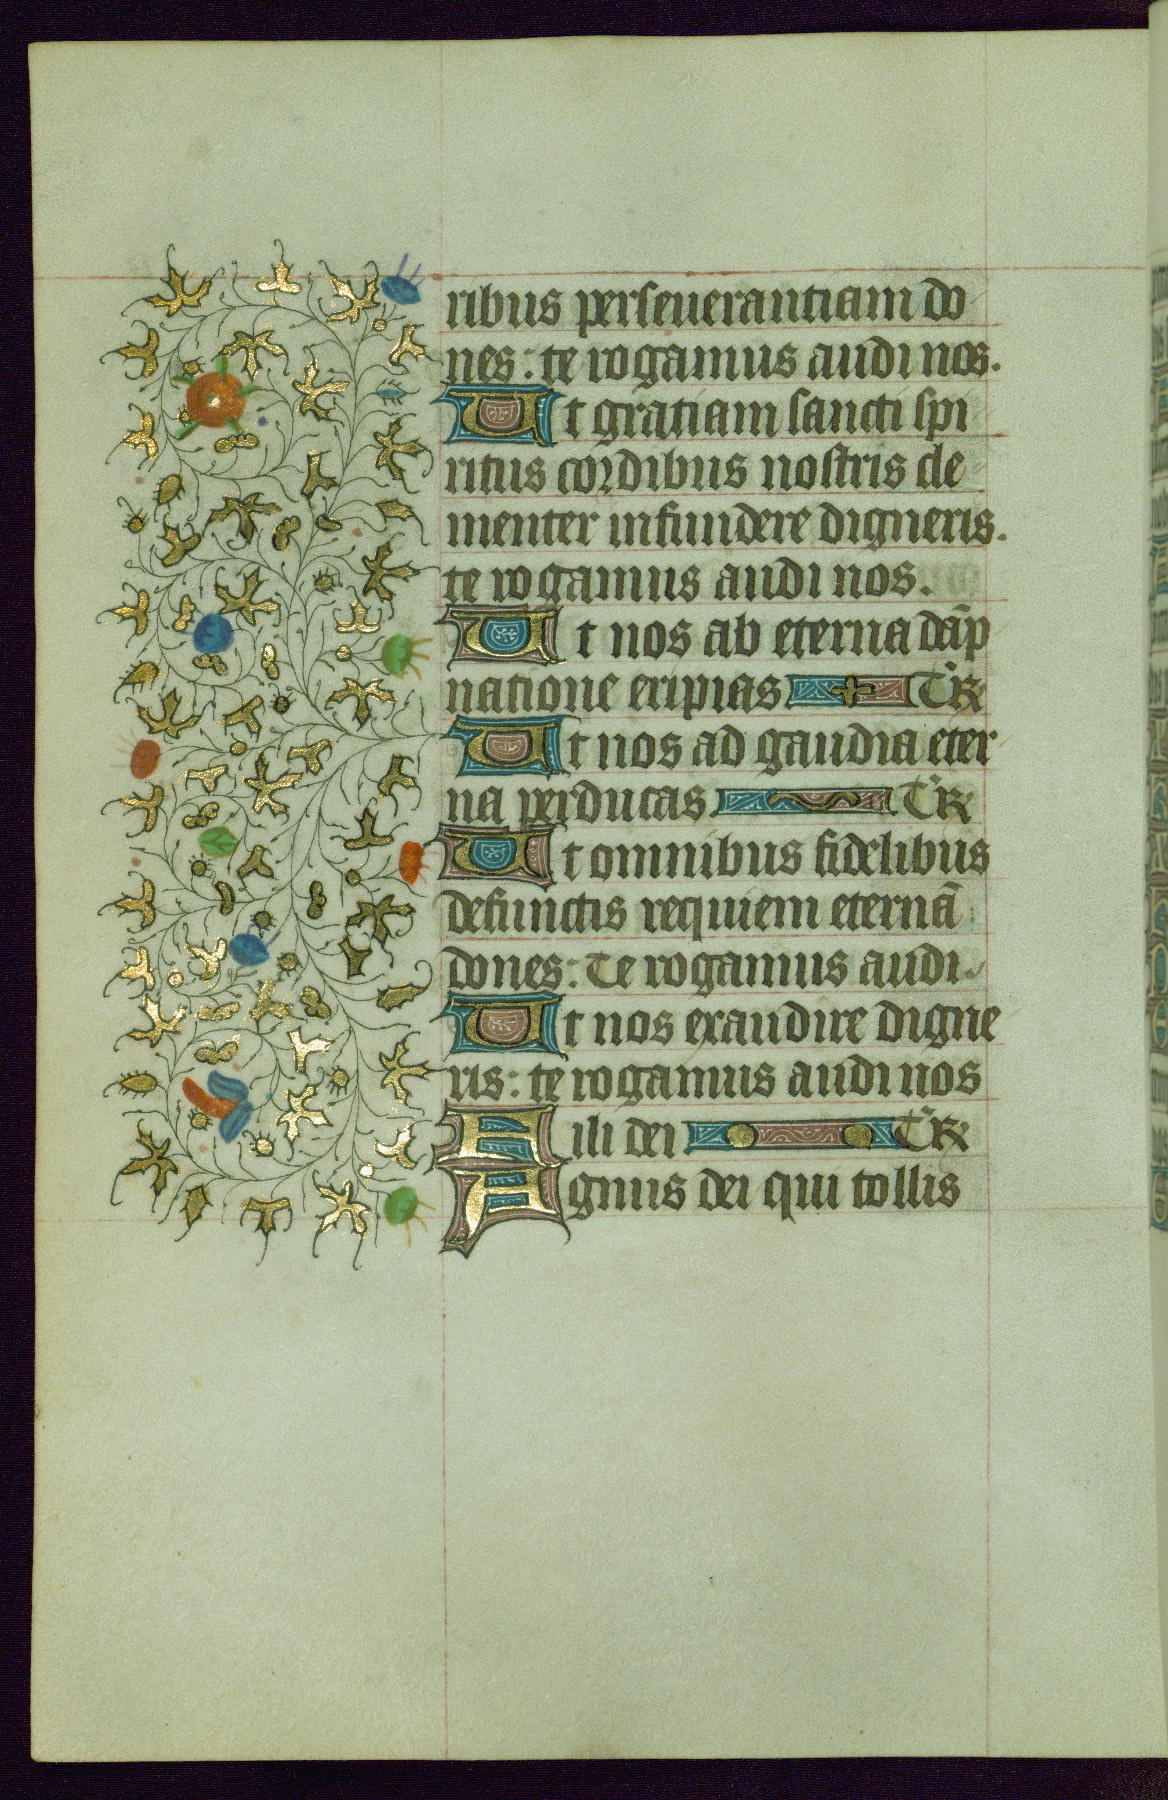 ribus perseuerantiam do
nes: te rogamus audi nos.
Ut gratiam sancti spi
ritus cordibus nostris cle
menter infundere digneris.
te rogamus audi nos.
Ut nos ab eterna dāp
natione eripias T̄R
Ut nos ad gaudia eter
na perducas T̄R
Ut omnibus fidelibus
defunctis requiem eternā
dones: Te rogamus audi.
Ut nos exaudire digne
ris: te rogamus audi nos
Fili dei T̄R
Agnus dei qui tollis